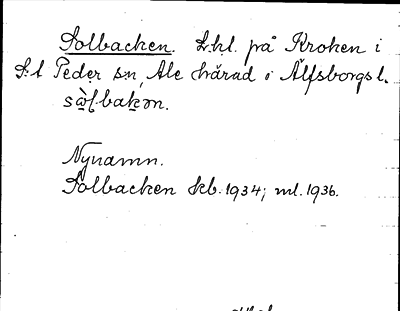 Solbacken. Lhl. på Kroken i
S:t Peder sn, Ale härad i Älfsborgs l.
Nynamn.
Solbacken kb. 1934; ml. 1936.